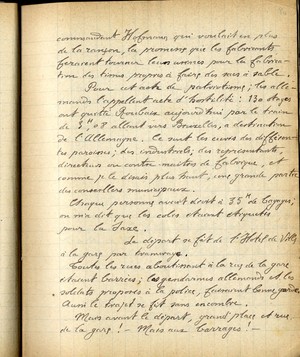 commandant Hofmann qui voulait en plus
de la rançon, la promesse que les fabricants
feraient tourner leurs usines pour la fabrica-
tion des tissus propres à faire des sacs à sable.
Pour cet acte de patriotisme; les alle-
mands l'appellent acte d'hostilité: 130 otages
ont quitté Roubaix aujourd'hui par le train
de 3h,08 allant vers Bruxelles, à destination
de l'Allemagne. Ce sont les curés des différen-
tes paroisses; des industriels; des représentants,
directeurs ou contre maîtres de fabrique, et
comme je le disais plus haut, une grande partie
des conseillers municipaux.
Chaque personne avait droit à 35 k de bagages;
on m'a dit que les colis étaient étiquetés
pour la Saxe.
Le départ se fait de l'Hôtel de Ville
à la gare par tramways.
Toutes les rues aboutissant à la rue de la gare
étaient barrées; les gendarmes allemands et les
soldats préposés à la police, faisaient bonne garde.
Aussi le trajet se fit sans encombre.
Mais avant le départ, grand'place et rue
de la gare! — Mais aux barrages! —